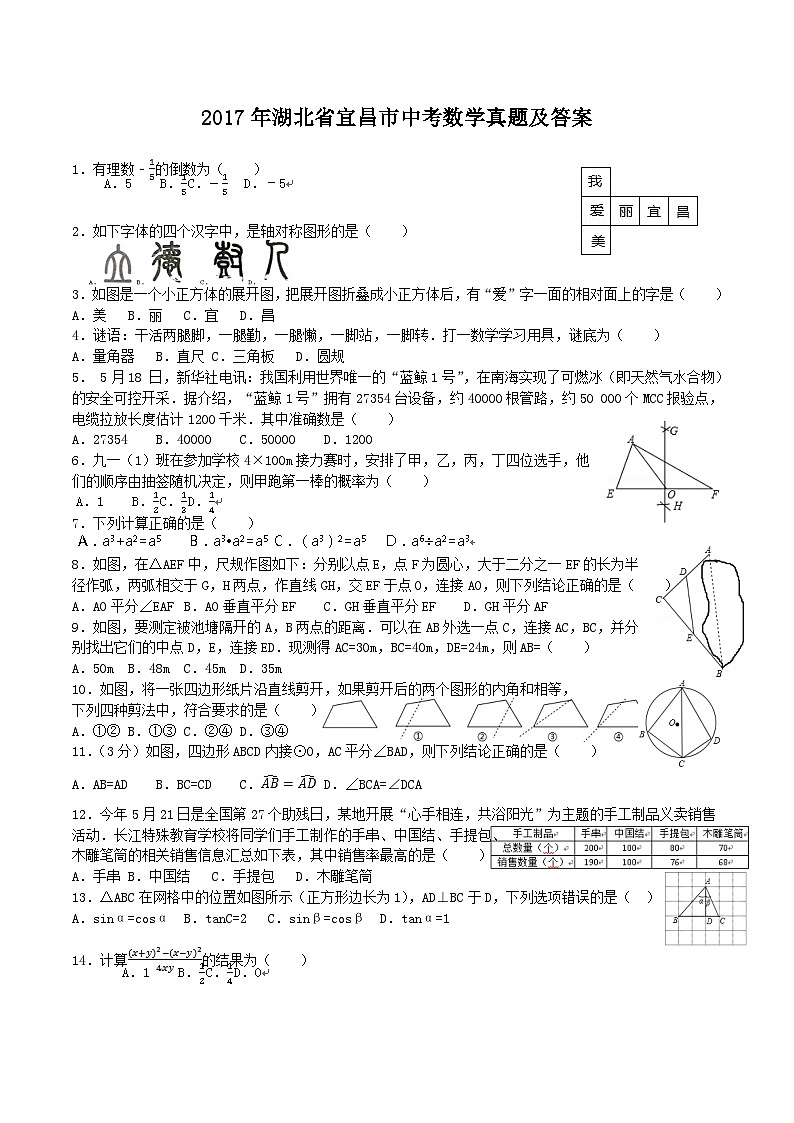 2017年湖北省宜昌市中考数学真题及答案
1.有理数﹣1/5的倒数为(    )
A.5    B.1/5 C.−1/5  D.﹣5
我
爱 丽 宜 昌
美
2.如下字体的四个汉字中,是轴对称图形的是(    )
A. B. C. D.
3.如图是一个小正方体的展开图,把展开图折叠成小正方体后,有“爱”字一面的相对面上的字是(    )
A.美  B.丽  C.宜  D.昌
4.谜语:干活两腿脚,一腿勤,一腿懒,一脚站,一脚转.打一数学学习用具,谜底为(    )
A.量角器  B.直尺 C.三角板  D.圆规
5. 5月18 日,新华社电讯:我国利用世界唯一的“蓝鲸1号”,在南海实现了可燃冰(即天然气水合物)
的安全可控开采.据介绍,“蓝鲸1号”拥有27354台设备,约40000根管路,约50 000个MCC报验点,
电缆拉放长度估计1200千米.其中准确数是(    )
A.27354  B.40000  C.50000  D.1200
6.九一(1)班在参加学校4×100m接力赛时,安排了甲,乙,丙,丁四位选手,他
们的顺序由抽签随机决定,则甲跑第一棒的概率为(    )
A.1   B.1/2 C.1/3 D.1/4
G
A
E O F
H
7.下列计算正确的是(    )
A.a³+a²=a⁵   B.a³•a²=a⁵ C.(a³)²=a⁵  D.a⁶÷a²=a³
8.如图,在△AEF中,尺规作图如下:分别以点E,点F为圆心,大于二分之一EF的长为半
径作弧,两弧相交于G,H两点,作直线GH,交EF于点O,连接AO,则下列结论正确的是(    )
A.AO平分∠EAF B.AO垂直平分EF   C.GH垂直平分EF   D.GH平分AF
9.如图,要测定被池塘隔开的A,B两点的距离.可以在AB外选一点C,连接AC,BC,并分
别找出它们的中点D,E,连接ED.现测得AC=30m,BC=40m,DE=24m,则AB=(    )
A.50m B.48m C.45m D.35m
A
D
C
E
B
10.如图,将一张四边形纸片沿直线剪开,如果剪开后的两个图形的内角和相等,
下列四种剪法中,符合要求的是(    )
① ② ③ ④
A.①② B.①③ C.②④ D.③④
A
O
B D
C
11.(3分)如图,四边形ABCD内接⊙O,AC平分∠BAD,则下列结论正确的是(    )
A.AB=AD   B.BC=CD   C.A͡B = A͡D D.∠BCA=∠DCA
12.今年5月21日是全国第27个助残日,某地开展“心手相连,共浴阳光”为主题的手工制品义卖销售
活动.长江特殊教育学校将同学们手工制作的手串、中国结、手提包、
木雕笔筒的相关销售信息汇总如下表,其中销售率最高的是(    )
手工制品 手串 中国结 手提包 木雕笔筒
总数量(个) 200 100 80 70
销售数量(个) 190 100 76 68
A.手串 B.中国结  C.手提包  D.木雕笔筒
13.△ABC在网格中的位置如图所示(正方形边长为1),AD⊥BC于D,下列选项错误的是(  )
A.sinα=cosα B.tanC=2  C.sinβ=cosβ D.tanα=1
A
α β
B D C
14.计算((x+y)²−(x−y)²)/4xy的结果为(    )
A.1  B.1/2 C.1/4 D.0